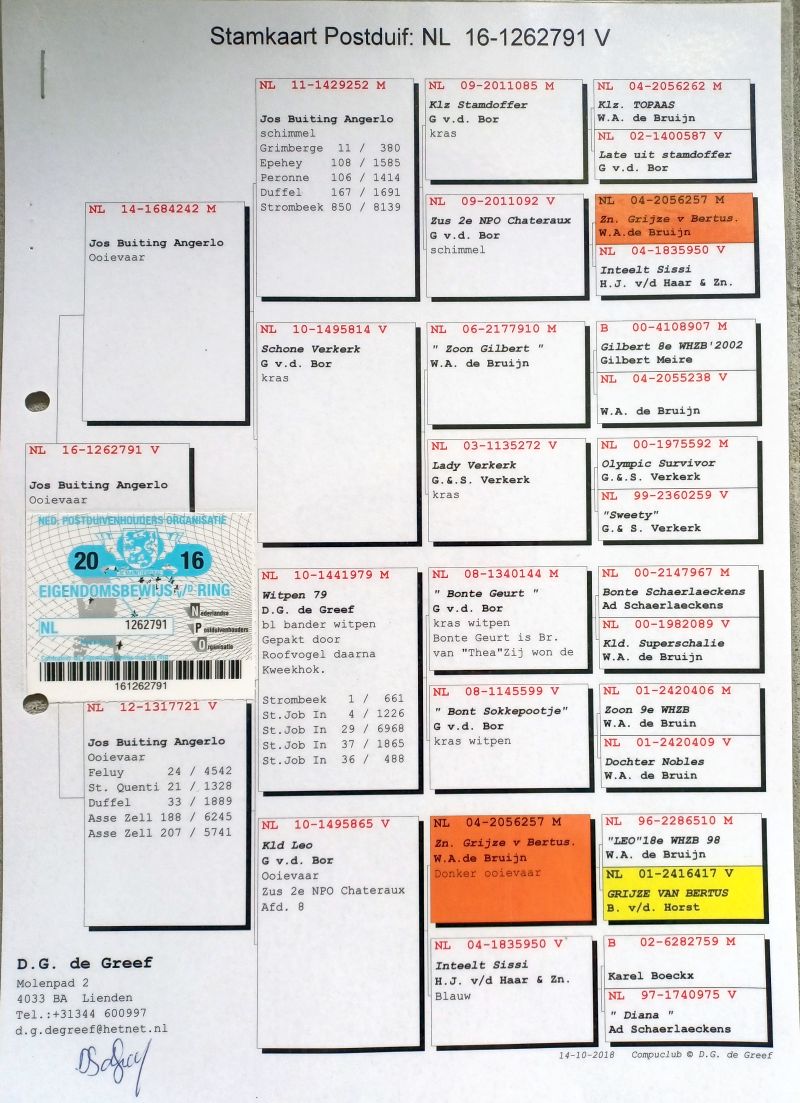 Stamkaart Postduif: NL 16-1262791 V
NL 16-1262791 V
Jos Buiting Angerlo
Ooievaar
NED. POSTDUIVENHOUDERS ORGANISATIE
20 16
EIGENDOMSBEWIJS V/D RING
NL 1262791
Nederlandse
Postduivenhouders
Organisatie
161262791
NL 14-1684242 M
Jos Buiting Angerlo
Ooievaar
NL 12-1317721 V
Jos Buiting Angerlo
Ooievaar
Feluy 24 / 4542
St. Quenti 21 / 1328
Duffel 33 / 1889
Asse Zell 188 / 6245
Asse Zell 207 / 5741
NL 11-1429252 M
Jos Buiting Angerlo
schimmel
Grimberge 11 / 380
Epehey 108 / 1585
Peronne 106 / 1414
Duffel 167 / 1691
Strombeek 850 / 8139
NL 10-1495814 V
Schone Verkerk
G v.d. Bor
kras
NL 10-1441979 M
Witpen 79
D.G. de Greef
bl bander witpen
Gepakt door
Roofvogel daarna
Kweekhok.
Strombeek 1 / 661
St.Job In 4 / 1226
St.Job In 29 / 6968
St.Job In 37 / 1865
St.Job In 36 / 488
NL 10-1495865 V
Kld Leo
G v.d. Bor
Ooievaar
Zus 2e NPO Chateraux
Afd. 8
NL 09-2011085 M
Klz Stamdoffer
G v.d. Bor
kras
NL 09-2011092 V
Zus 2e NPO Chateraux
G v.d. Bor
schimmel
NL 06-2177910 M
" Zoon Gilbert "
W.A. de Bruijn
NL 03-1135272 V
Lady Verkerk
G.&.S. Verkerk
kras
NL 08-1340144 M
" Bonte Geurt "
G v.d. Bor
kras witpen
Bonte Geurt is Br.
van "Thea"Zij won de
NL 08-1145599 V
" Bont Sokkepootje"
G v.d. Bor
kras witpen
NL 04-2056257 M
Zn. Grijze v Bertus.
W.A.de Bruijn
Donker ooievaar
NL 04-1835950 V
Inteelt Sissi
H.J. v/d Haar & Zn.
Blauw
NL 04-2056262 M
Klz. TOPAAS
W.A. de Bruijn
NL 02-1400587 V
Late uit stamdoffer
G v.d. Bor
NL 04-2056257 M
Zn. Grijze v Bertus.
W.A.de Bruijn
NL 04-1835950 V
Inteelt Sissi
H.J. v/d Haar & Zn.
B 00-4108907 M
Gilbert 8e WHZB'2002
Gilbert Meire
NL 04-2055238 V
W.A. de Bruijn
NL 00-1975592 M
Olympic Survivor
G.&.S. Verkerk
NL 99-2360259 V
"Sweety"
G.& S. Verkerk
NL 00-2147967 M
Bonte Schaerlaeckens
Ad Schaerlaeckens
NL 00-1982089 V
Kld. Superschalie
W.A. de Bruijn
NL 01-2420406 M
Zoon 9e WHZB
W.A. de Bruin
NL 01-2420409 V
Dochter Nobles
W.A. de Bruin
NL 96-2286510 M
"LEO"18e WHZB 98
W.A. de Bruijn
NL 01-2416417 V
GRIJZE VAN BERTUS
B. v/d. Horst
B 02-6282759 M
Karel Boeckx
NL 97-1740975 V
" Diana "
Ad Schaerlaeckens
D.G. de Greef
Molenpad 2
4033 BA Lienden
Tel.:+31344 600997
d.g.degreef@hetnet.nl
14-10-2018 Compuclub © D.G. de Greef